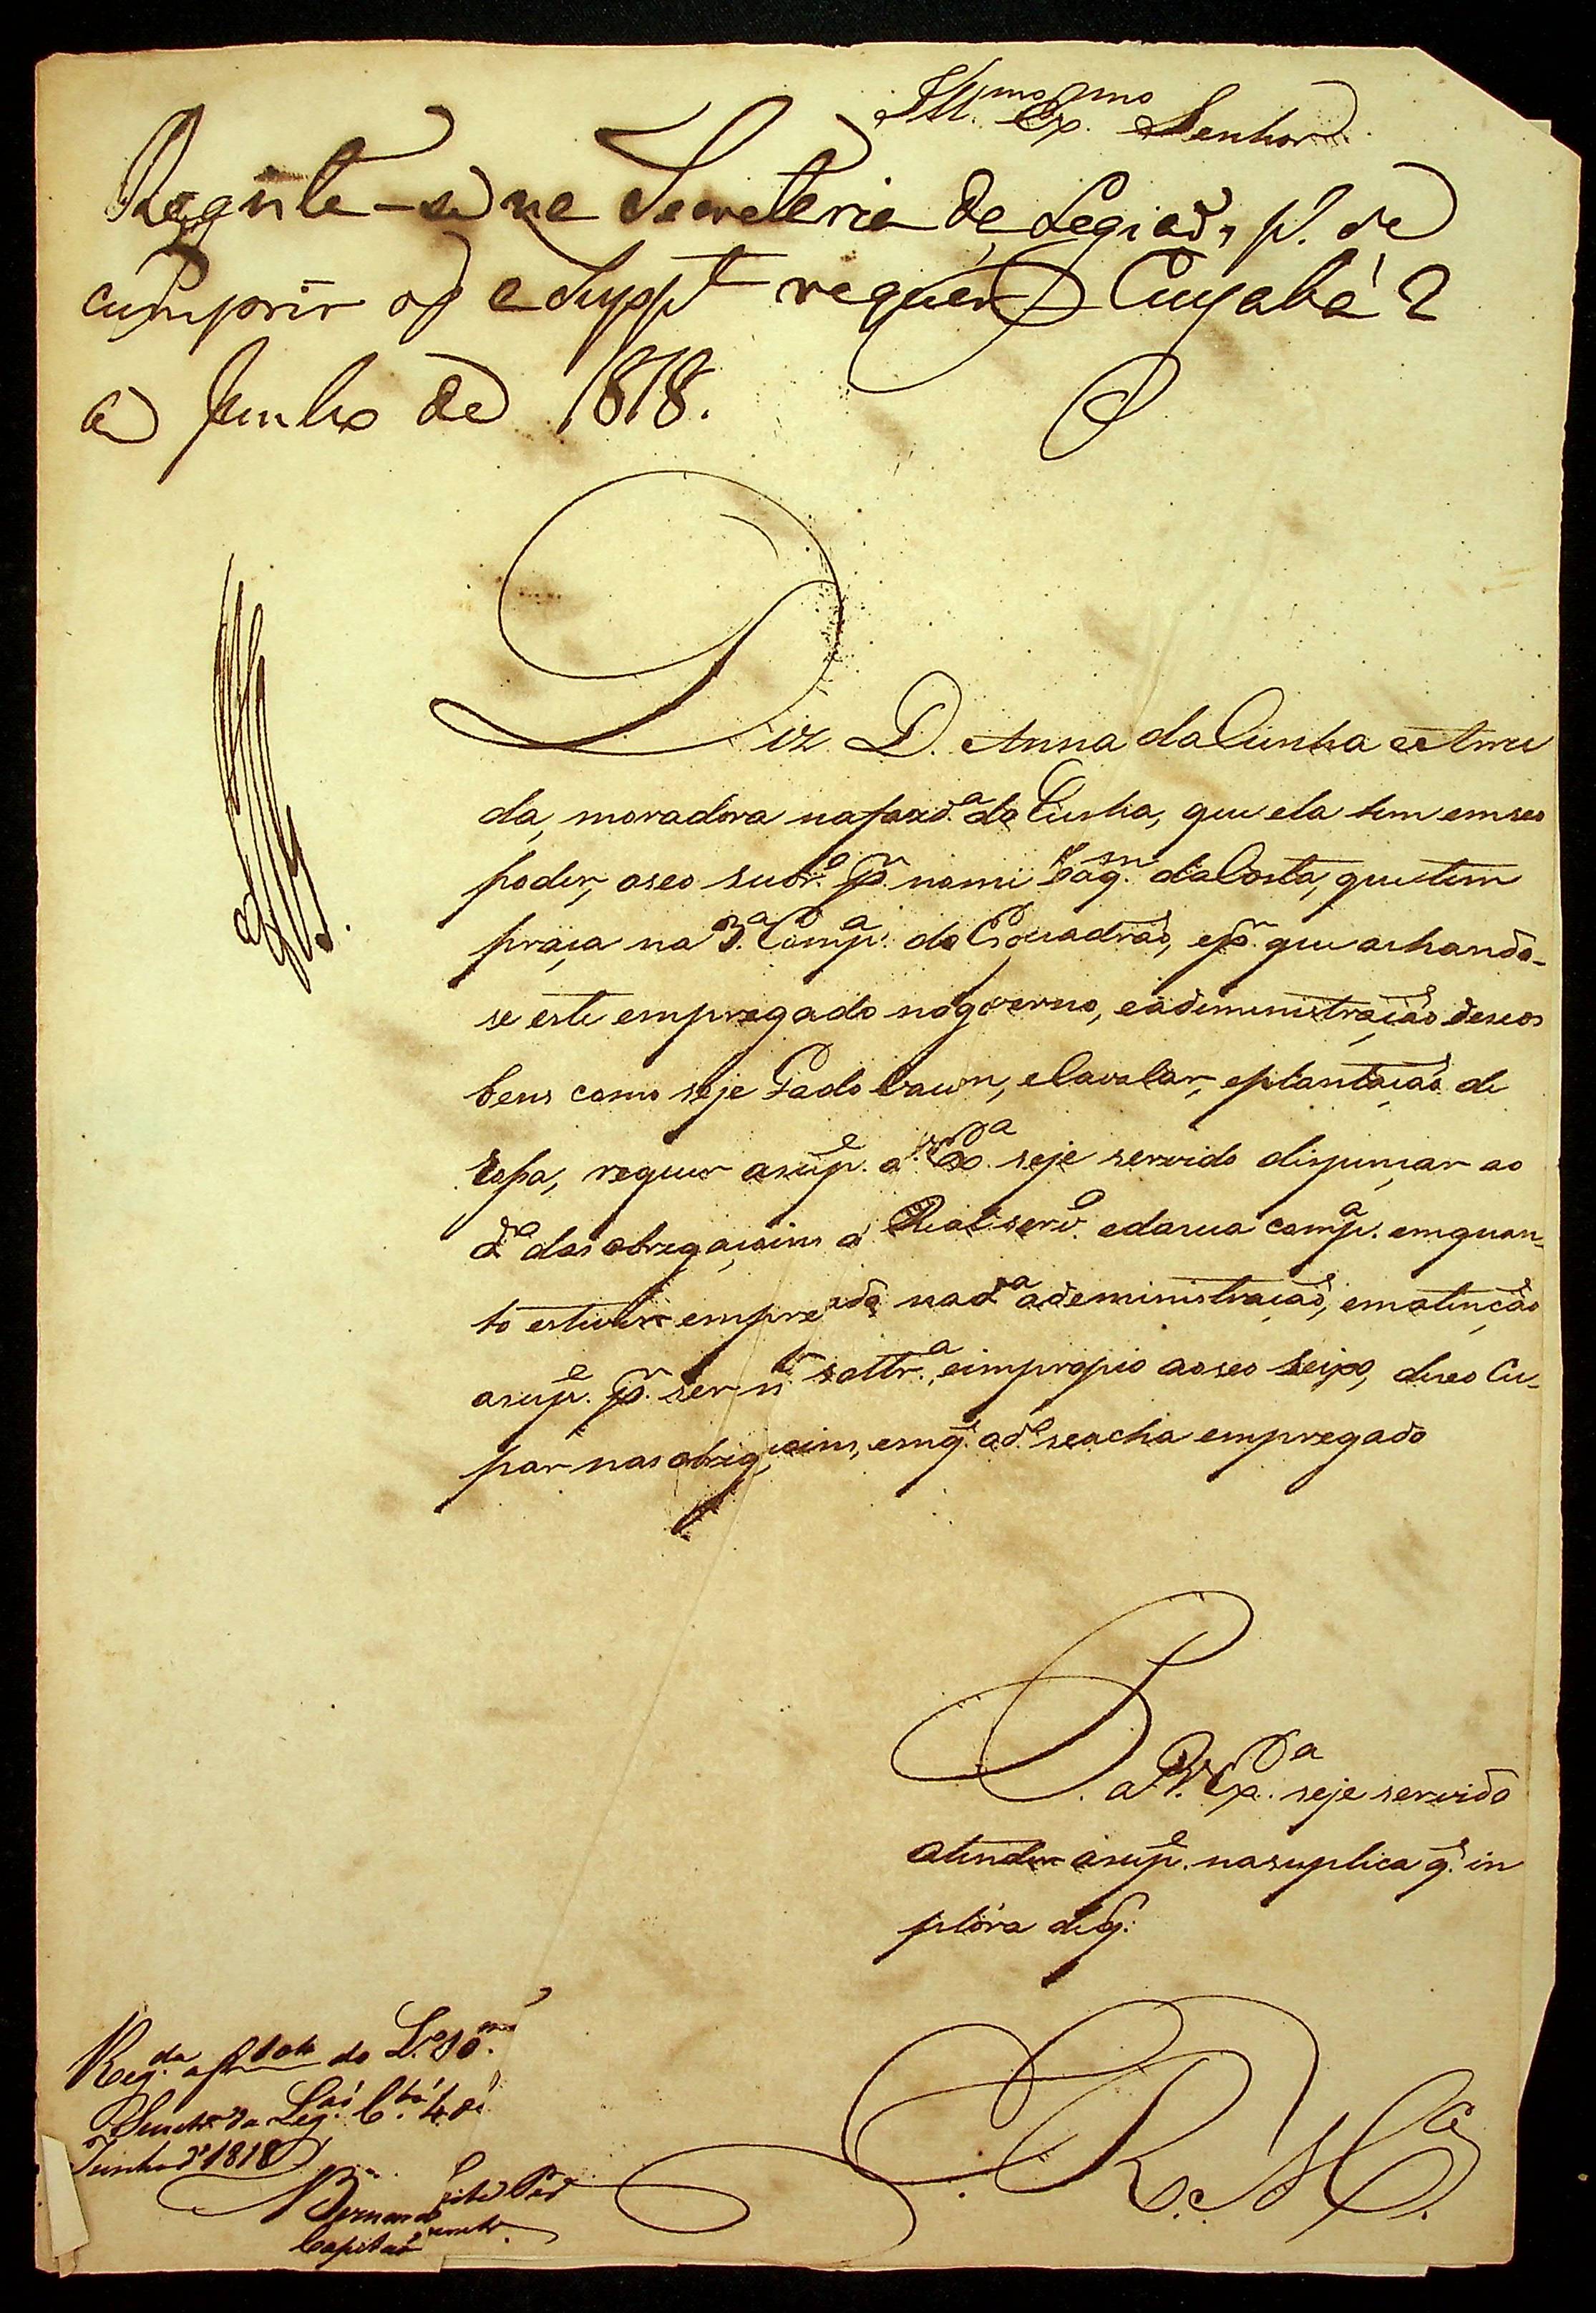 Ill.mo Ex.mo Senhor
Registe-se na Secretaria da Legiaõ, p.a se
cumprir oq̃ a Supp.te requer Cuyabá 2
de Junho de 1818.
Diz D. Anna da Cunha e Arru
da, moradora nafazd.a da Cunha, que ela tem emseo
poder, oseo Subr.o p.r nome Joaq.m da Costa, quetem
praça na 3.a Comp.a do Esquadraõ, e p.r que achando-
se este empregado nogoverno, eadeministraçaõ deseos
bens como seje Gado Vacum, eCavalar, eplantaçaõ de
rosa, requer asup.e a V. Ex.a seje servido dispençar ao
d.o das obrigaçoins do Real serv.o edasua comp.a emquan-
to estiver empregado nad.a adeministraçaõ, ematençaõ
asup.e p.r ser solttr.a, eimpropio aoseo Seixo, deseo Cu-
par nasobrigaçoins, emq.̃ od.o seacha empregado
P. a V. Ex.a seje servido
atender asup.e nasuplica q.̃ in
plóra deq.̃
E. R. M.ce
Reg.da af do L.o 10.mo
Secretr.a da Leg.aõ C.bá 4 de
Junho d'1818
Bernardo
Capitaõ